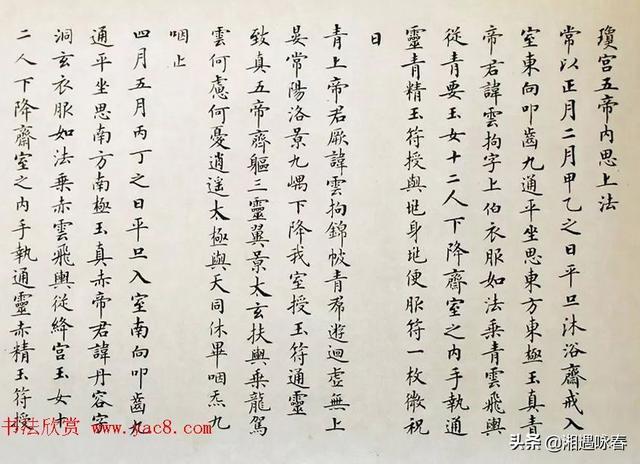 瓊宮五帝內思上法
常以正月二月甲乙之日平旦沐浴齋戒入
室東向叩齒九通平坐思東方東極玉真青
帝君諱雲拘字上伯衣服如法乘青雲飛輿
從青要玉女十二人下降齋室之內手執通
靈青精玉符授與兆身兆便服符一枚微祝
曰
青上帝君厥諱雲拘錦帔青帬遊迴虛無上
晏常陽洛景九嵎下降我室授玉符通靈
致真五帝齊軀三靈翼景太玄扶輿乘龍駕
雲何慮何憂逍遥太極與天同休畢咽炁九
咽止
四月五月丙丁之日平旦入室南向叩齒九
通平坐思南方南極玉真赤帝君諱丹容字
洞玄衣服如法乘赤雲飛輿從絳宮玉女十
二人下降齋室之內手執通靈赤精玉符授
书法欣赏 www.yac8.com
头条 @湘遇咏春